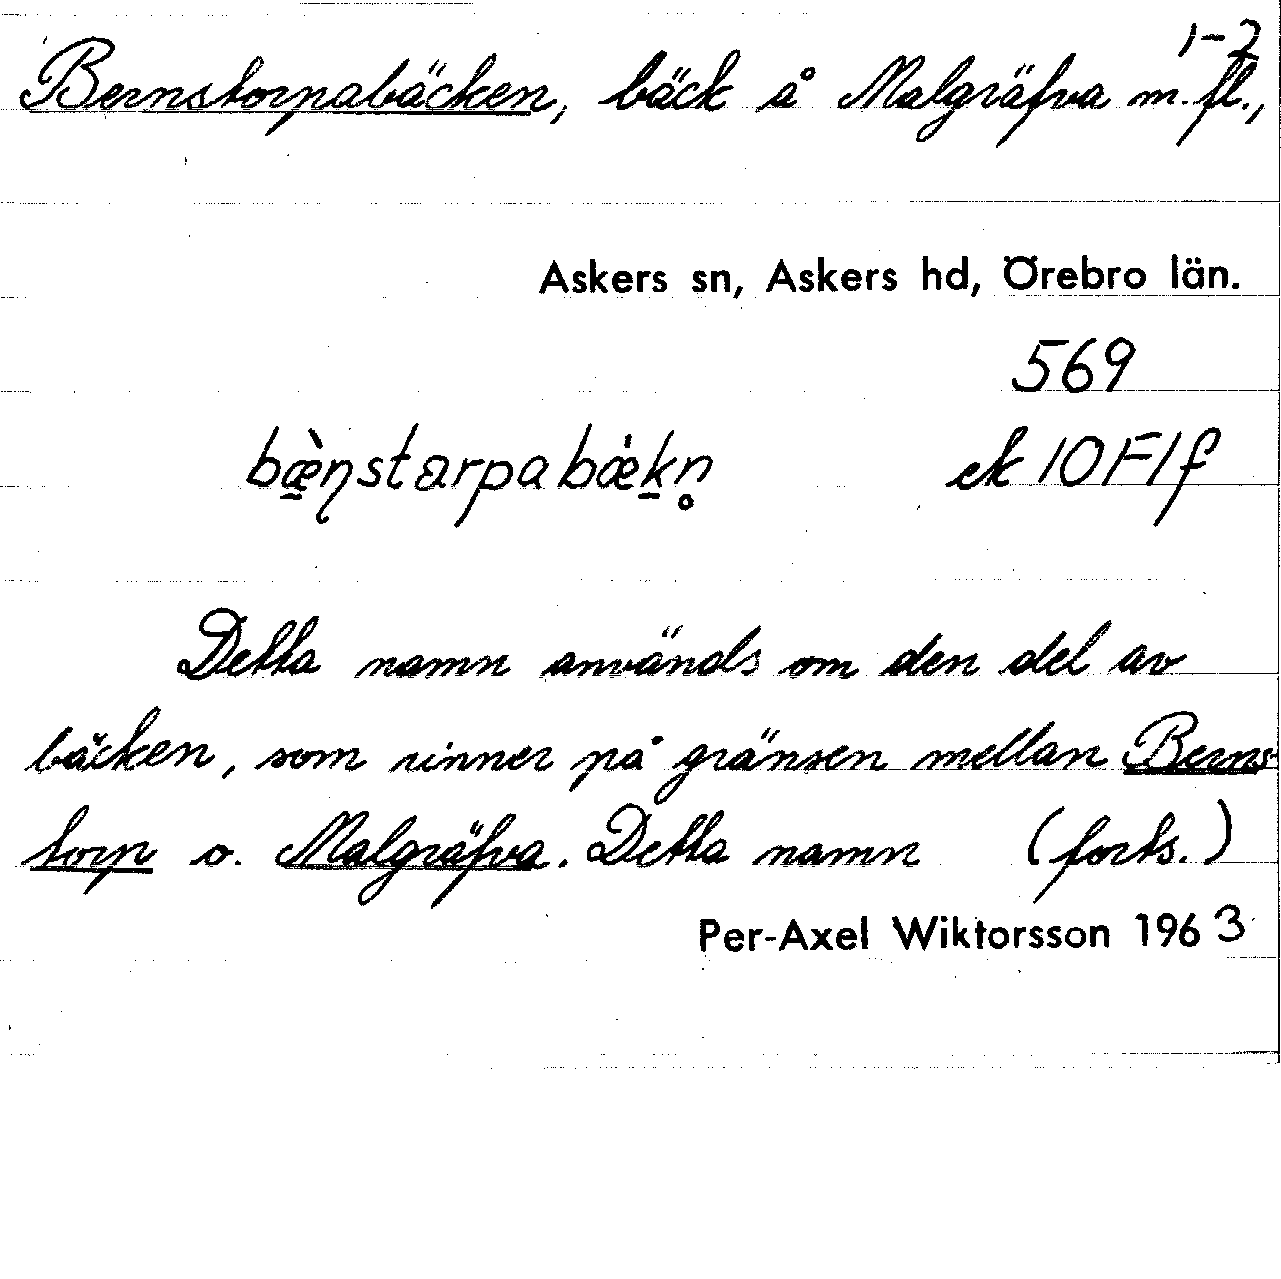 1-2
Bernstorpabäcken, bäck å Malgräfva m. fl.,
Askers sn, Askers hd, Örebro län.
569
bæ̀ṇstarpabǽkn̥ ek 10F1f
Detta namn används om den del av
bäcken, som rinner på gränsen mellan Berns-
torp o. Malgräfva. Detta namn (forts.)
Per-Axel Wiktorsson 1963